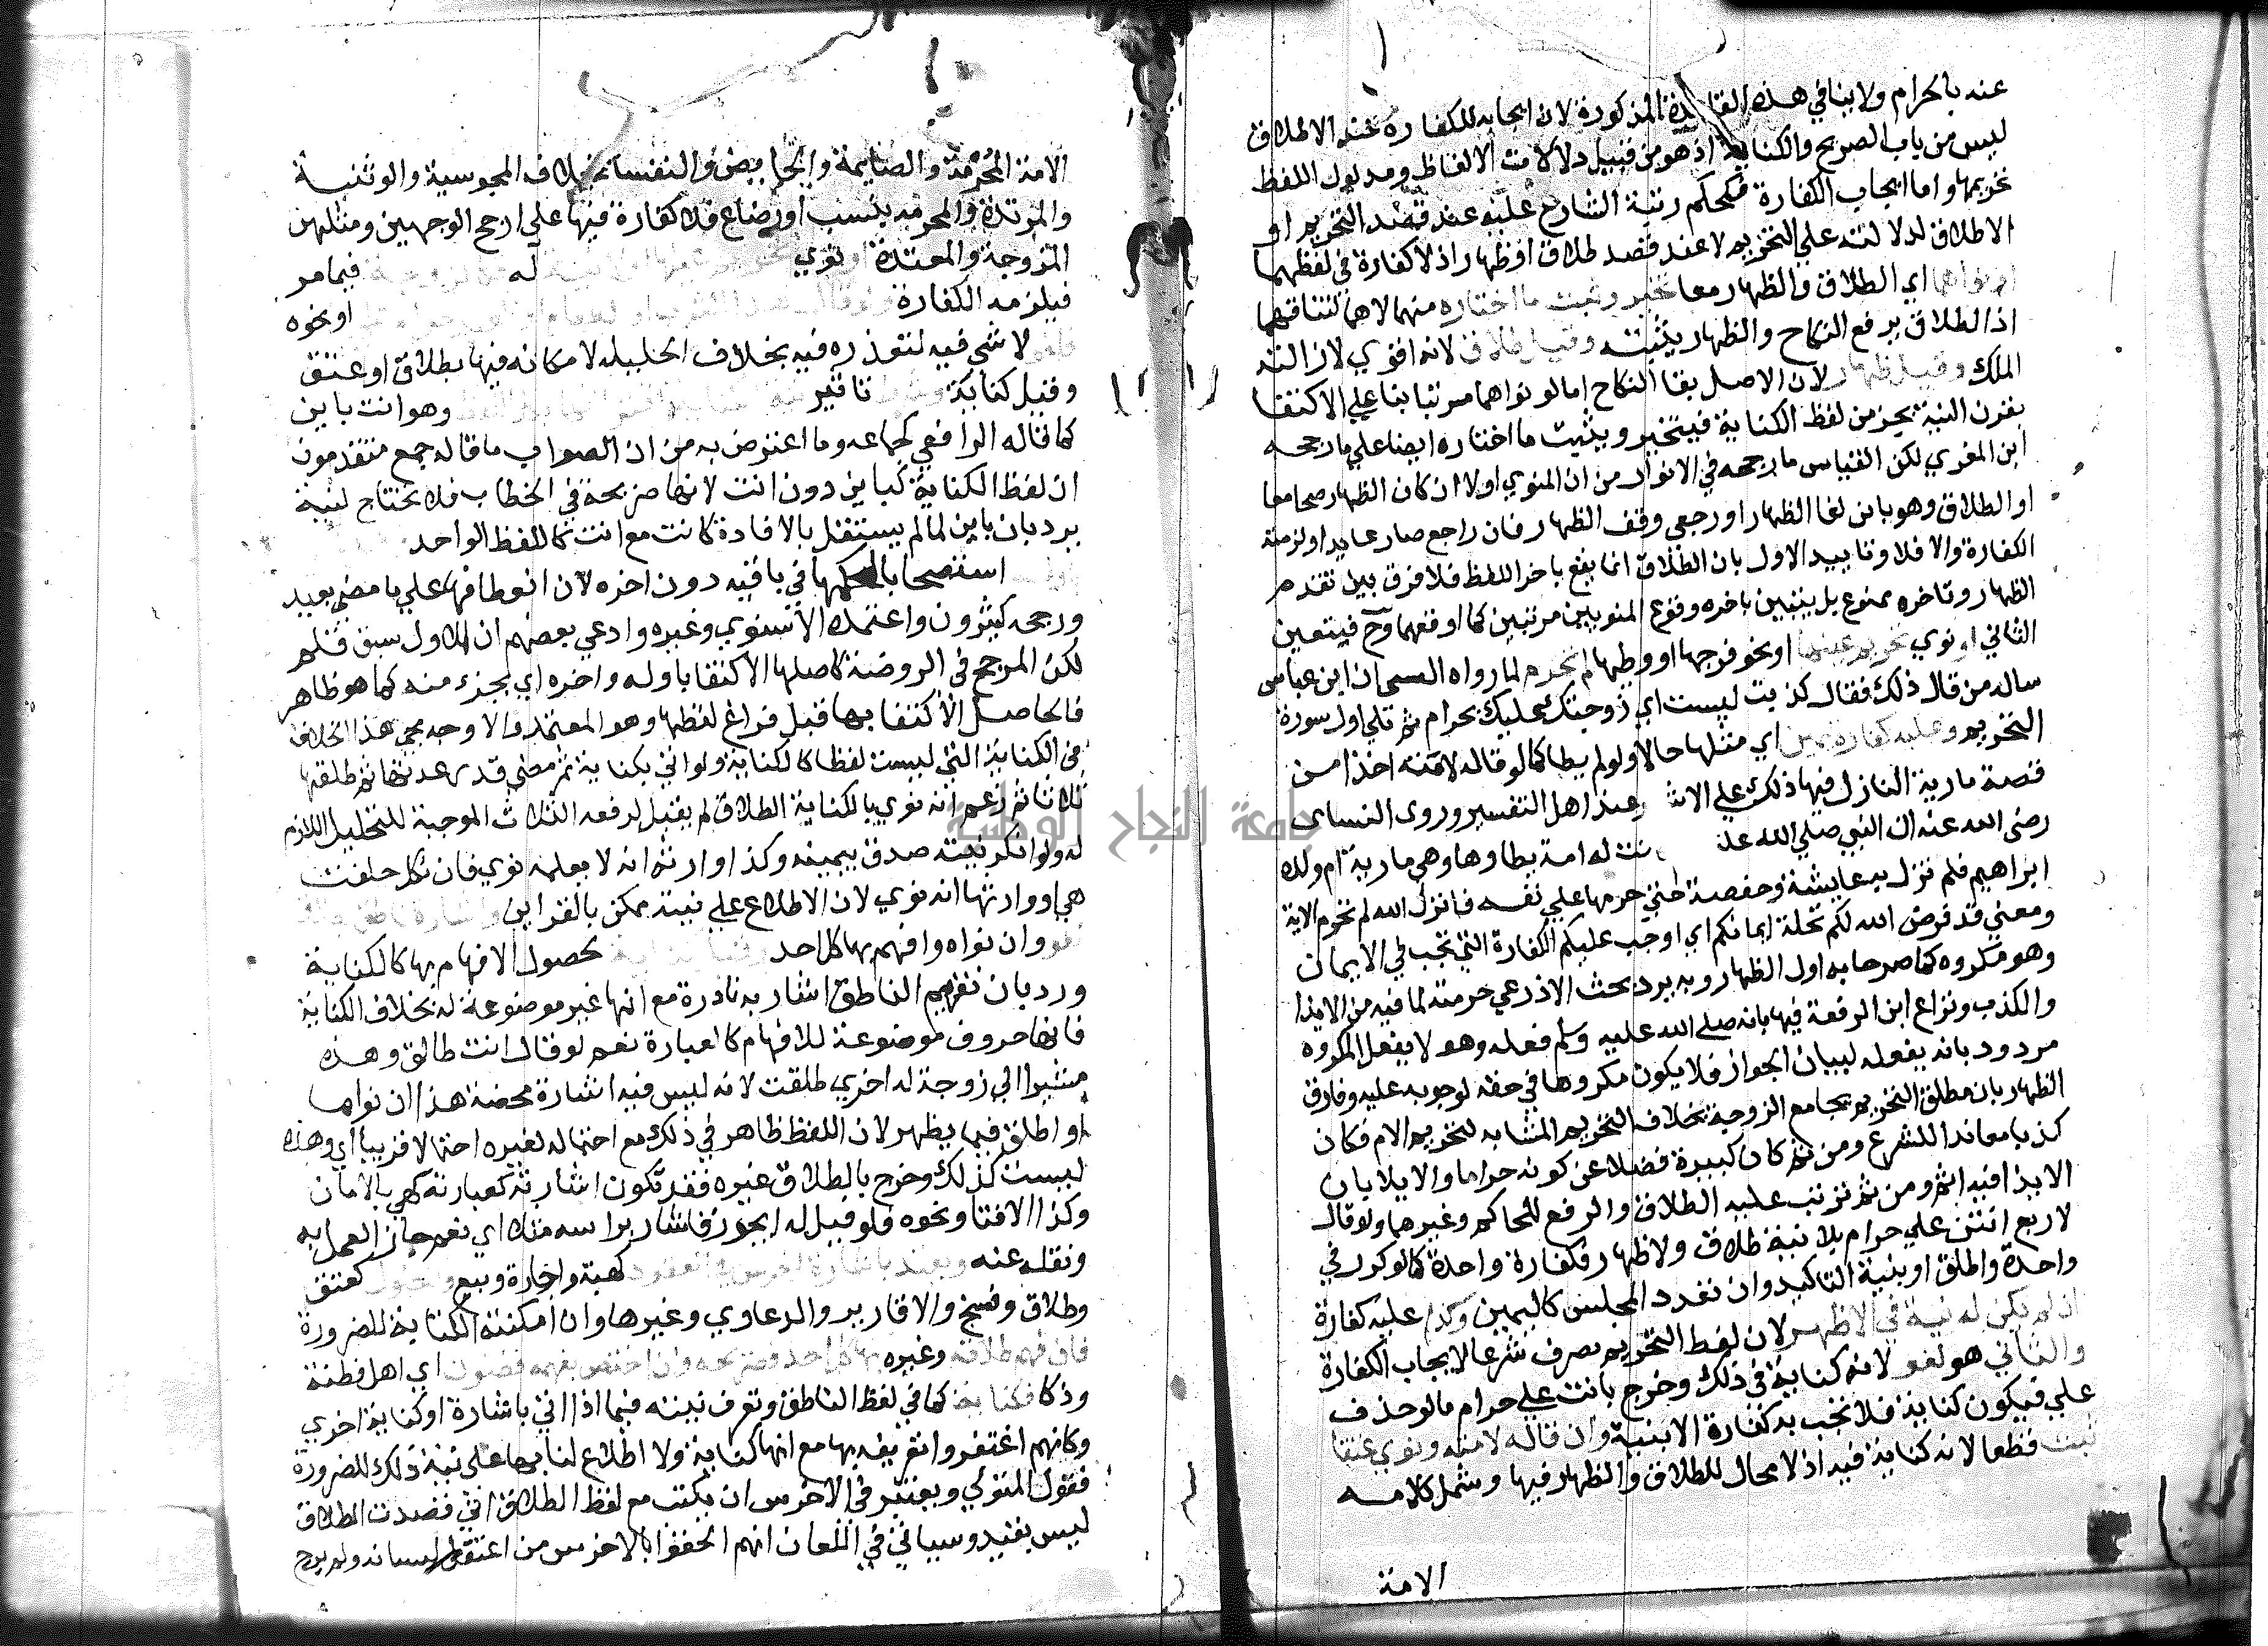 عنه بالحرام ولا ينافي هذه القاعدة المذكورة لان ايجابه للكفارة عند الاطلاق
ليس من باب الصريح والكناية اذ هو من قبيل دلالات الالفاظ ومدلول اللفظ
تحريمها واما ايجاب الكفارة فحكم رتبه الشارع عليه عند قصد التحريم او
الاطلاق لدلالته علي التحريم لا عند قصد طلاق او ظهار اذ لا كفارة في لفظهما
او نواهما اي الطلاق والظهار معا تخير وثبت ما اختاره منهما لاهما لتناقضهما
اذ الطلاق يرفع النكاح والظهار يثبته وقيل طلاق لانه اقوي لازالته
الملك وقيل ظهار لان الاصل بقا النكاح اما لو نواهما مرتبا بنا علي الاكتفا
بقرن النية بجزء من لفظ الكناية فيتخير ويثبت ما اختاره ايضا علي ما رجحه
ابن المقري لكن القياس ما رجحه في الانوار من ان المنوي اولا ان كان الظهار صحا معا
او الطلاق وهو باين لغا الظهار او رجعي وقف الظهار فان راجع صار عايدا ولزمته
الكفارة والا فلا وتاييد الاول بان الطلاق انما يقع باخر اللفظ فلا فرق بين تقدم
الظهار وتاخره ممنوع بل يتبين باخره وقوع المنويين مرتبين كما اوقعهما وح فيتعين
الثاني او نوي تحريم عينها او نحو فرجها او وطيها لم تحرم لما رواه النسائي ان ابن عباس
ساله من قال ذلك فقال كذبت ليست اي زوجتك عليك بحرام ثم تلي اول سورة
التحريم وعليه كفارة يمين اي مثلها حالا ولو لم يطا كما لو قاله لامته اخذا من
قصة مارية النازل فيها ذلك علي الاشهر عند اهل التفسير وروي النساي
رضي الله عنه ان النبي صلي الله عليه كانت له امة يطاوها وهي مارية ام ولده
ابراهيم فلم تزل به عايشة وحفصة حتي حرمها علي نفسه فانزل الله لم تحرم الاية
ومعني قد فرض الله لكم تحلة ايمانكم اي اوجب عليكم الكفارة التي تجب في الايمان
وهو مكروه كما صرحا به اول الظهار وبه يرد بحث الاذرعي حرمته لما فيه من الايذا
والكذب ونزاع ابن الرفعة فيها بانه صلي الله عليه وسلم فعله وهو لا يفعل المكروه
مردود بانه يفعله لبيان الجواز فلا يكون مكروها في حقه لوجوبه عليه وفارق
الظهار بان مطلق التحريم يجامع الزوجة بخلاف التحريم المشابه لتحريم الام فكان
كذبا معاندا للشرع ومن ثم كان كبيرة فضلا عن كونه حراما والايلا بان
الايذا فيه اتم ومن ثم ترتب عليه الطلاق والرفع للحاكم وغيرهما ولو قال
لاربع انتن علي حرام بلا نية طلاق ولا ظهار فكفارة واحدة كما لو كرر في
واحدة واطلق او بنية التاكيد وان تعدد المجلس كاليمين وكذا عليه كفارة
ان لم تكن له نية في الاظهر لان لفظ التحريم صرف شرعا لايجاب الكفارة
والثاني هو لغو لانه كناية في ذلك وخرج بانت علي حرام ما لو حذف
علي فيكون كناية فلا تجب به كفارة الا بنية وان قاله لامته ونوي عتقا
ثبت قطعا لانه كناية فيه اذ لا مجال للطلاق والظهار فيها وشمل كلامه
الامة
الامة المحرمة والصايمة والحايض والنفسا بخلاف المجوسية والوثنية
والمرتدة والمحرمه بنسب او رضاع فلا كفارة فيها علي ارجح الوجهين ومثلهن
المزوجة والمعتدة او نوي له فيما مر
فيلزمه الكفارة او نحوه
لا شي فيه لتعذره فيه بخلاف الحليله لامكانه فيها بطلاق او عتق
وقيل كناية تاثير وهو انت باين
كما قاله الرافعي كجماعه وما اعترض به من ان الصواب ما قاله جمع متقدمون
ان لفظ الكناية كباين دون انت لانها صريحة في الخطاب فلا تحتاج لنية
يرد بان باين لما لم يستقل بالافادة كانت مع انت كاللفظ الواحد
استصحابا لحكمها في باقيه دون اخره لان انعطافها علي ما مضي بعيد
ورجحه كثيرون واعتمده الاسنوي وغيره وادعي بعضهم ان الاول سبق قلم
لكن المرجح في الروضة كاصلها الاكتفا باوله واخره اي بجزء منه كما هو ظاهر
فالحاصل الاكتفا بها قبل فراغ لفظها وهو المعتمد والاوجه مجي هذا الخلاف
في الكناية التي ليست لفظا كالكتابة ولو اتي بكناية ثم مضي قدر عدتها ثم طلقها
ثلاثا ثم زعم انه نوي بالكناية الطلاق لم يقبل لرفعه الثلاث الموجبة للتحليل اللازم
له ولو انكر نيته صدق بيمينه وكذا وارثه انه لا يعلمه نوي فان نكل حلفت
هي او وارثها انه نوي لان الاطلاع علي نيته ممكن بالقراين
وان نواه وافهم بها كل احد لحصول الافهام بها كالكناية
ورد بان تفهيم الناطق اشاربه نادرة مع انها غير موضوعة له بخلاف الكناية
فانها حروف موضوعة للافهام كالعبارة نعم لو قال انت طالق وهذه
مشيرا الي زوجة له اخري طلقت لانه ليس فيه اشارة محضة هذا ان نواها
او اطلق فيما يظهر لان اللفظ ظاهر في ذلك مع احتماله لغيره احتمالا قريبا اي وهذه
ليست كذلك وخرج بالطلاق غيره فقد تكون اشارته كعبارته كهي بالامان
وكذا الافتا ونحوه فلو قيل له ايجوز فاشار براسه مثلا اي نعم جاز العمل به
ونقله عنه ويعتد باشارة اخرس في العقود كهبة واجارة وبيع كعتق
وطلاق وفسخ والاقارير والدعاوي وغيرها وان امكنته الكتابة للضرورة
فان فهم طلاقه وغيره بها كل احد فصريحه وان اختص بفهمه فطنون اي اهل فطنة
وذكا فكناية كما في لفظ الناطق وتعرف نيته فيما اذا اتي باشارة او كناية اخري
وكانهم اغتفروا تعريفه بها مع انها كناية ولا اطلاع لنا بها علي نية ذلك للضرورة
فقول المتولي ويعتبر في الاخرس ان يكتب مع لفظ الطلاق اني قصدت الطلاق
ليس بقيد وسياتي في اللعان انهم الحقوا بالاخرس من اعتقل لسانه ولم يرج